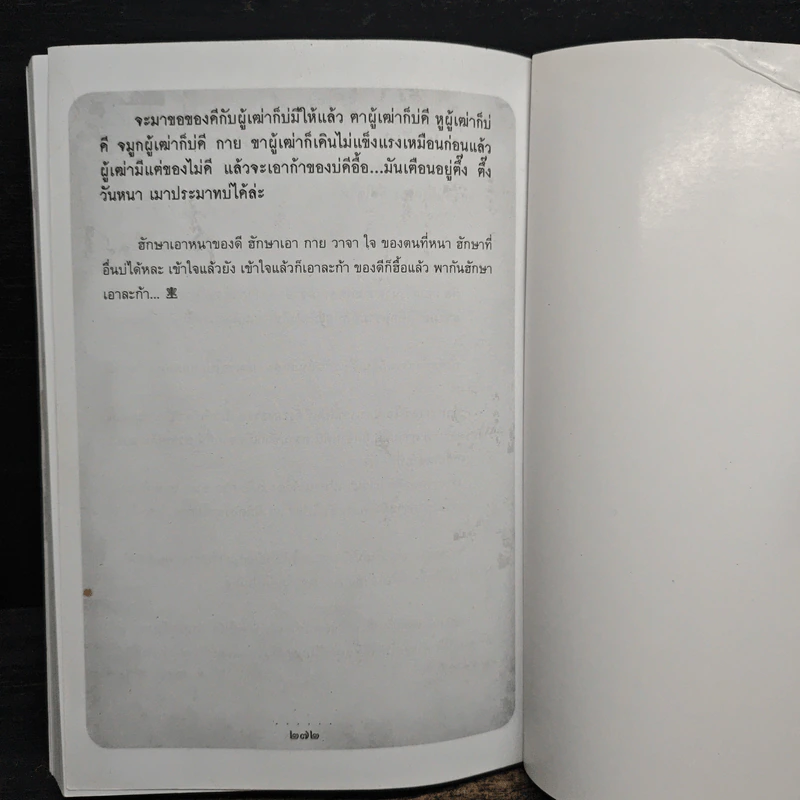 จะมาขอของดีกับผู้เฒ่าก็บ่มีให้แล้ว ตาผู้เฒ่าก็บ่ดี หูผู้เฒ่าก็บ่
ดี จมูกผู้เฒ่าก็บ่ดี กาย ขาผู้เฒ่าก็เดินไม่แข็งแรงเหมือนก่อนแล้ว
ผู้เฒ่ามีแต่ของไม่ดี แล้วจะเอาก้าของบ่ดีอื้อ...มันเตือนอยู่ตึ๊ง ตึ๊ง
วันหนา เมาประมาทบ่ได้ล่ะ
ฮักษาเอาหนาของดี ฮักษาเอา กาย วาจา ใจ ของตนที่หนา ฮักษาที่
อื่นบ่ได้หละ เข้าใจแล้วยัง เข้าใจแล้วก็เอาละก้า ของดีก็ฮื้อแล้ว พากันฮักษา
เอาละก้า...
๒๗๒